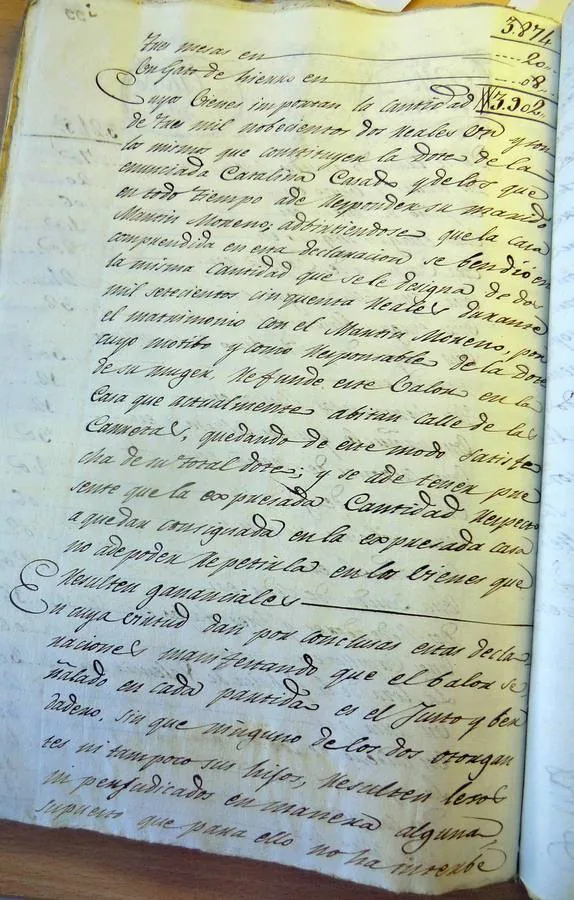 3.874
Tres mesas en 20
Un Gato de hierro en 08
3.902
Cuyos bienes importan la cantidad
de tres mil nobecientos dos reales vn y son
los mismos que constituyen la Dote de la
enunciada Catalina Casado y de los que
en todo tiempo ade responder su marido
Martin Moreno; adbirtiendose que la casa
comprendida en esta declaracion se bendió en
la misma cantidad que se le designa de dos
mil setecientos cinquenta reales durante
el matrimonio con el Martin Moreno, por
cuyo motibo y como responsable de la Dote
de su muger, refunde este balor en la
Casa que actualmente abitan calle de las
Carreras, quedando de este modo satisfe
cha de su total dote; y se ade tener pre
sente que la expresada Cantidad respecto
a quedar consignada en la expresada casa
no adepoder repetirla en los bienes que
resulten gananciales
En cuya virtud dan por conclusas estas decla
raciones manifestando que el balor se
ñalado en cada partida es el Justo y ber
dadero, sin que ninguno de los dos otorgan
tes ni tampoco sus hijos, resulten lesos
ni perjudicados en manera alguna
supuesto que para ello no ha interbe